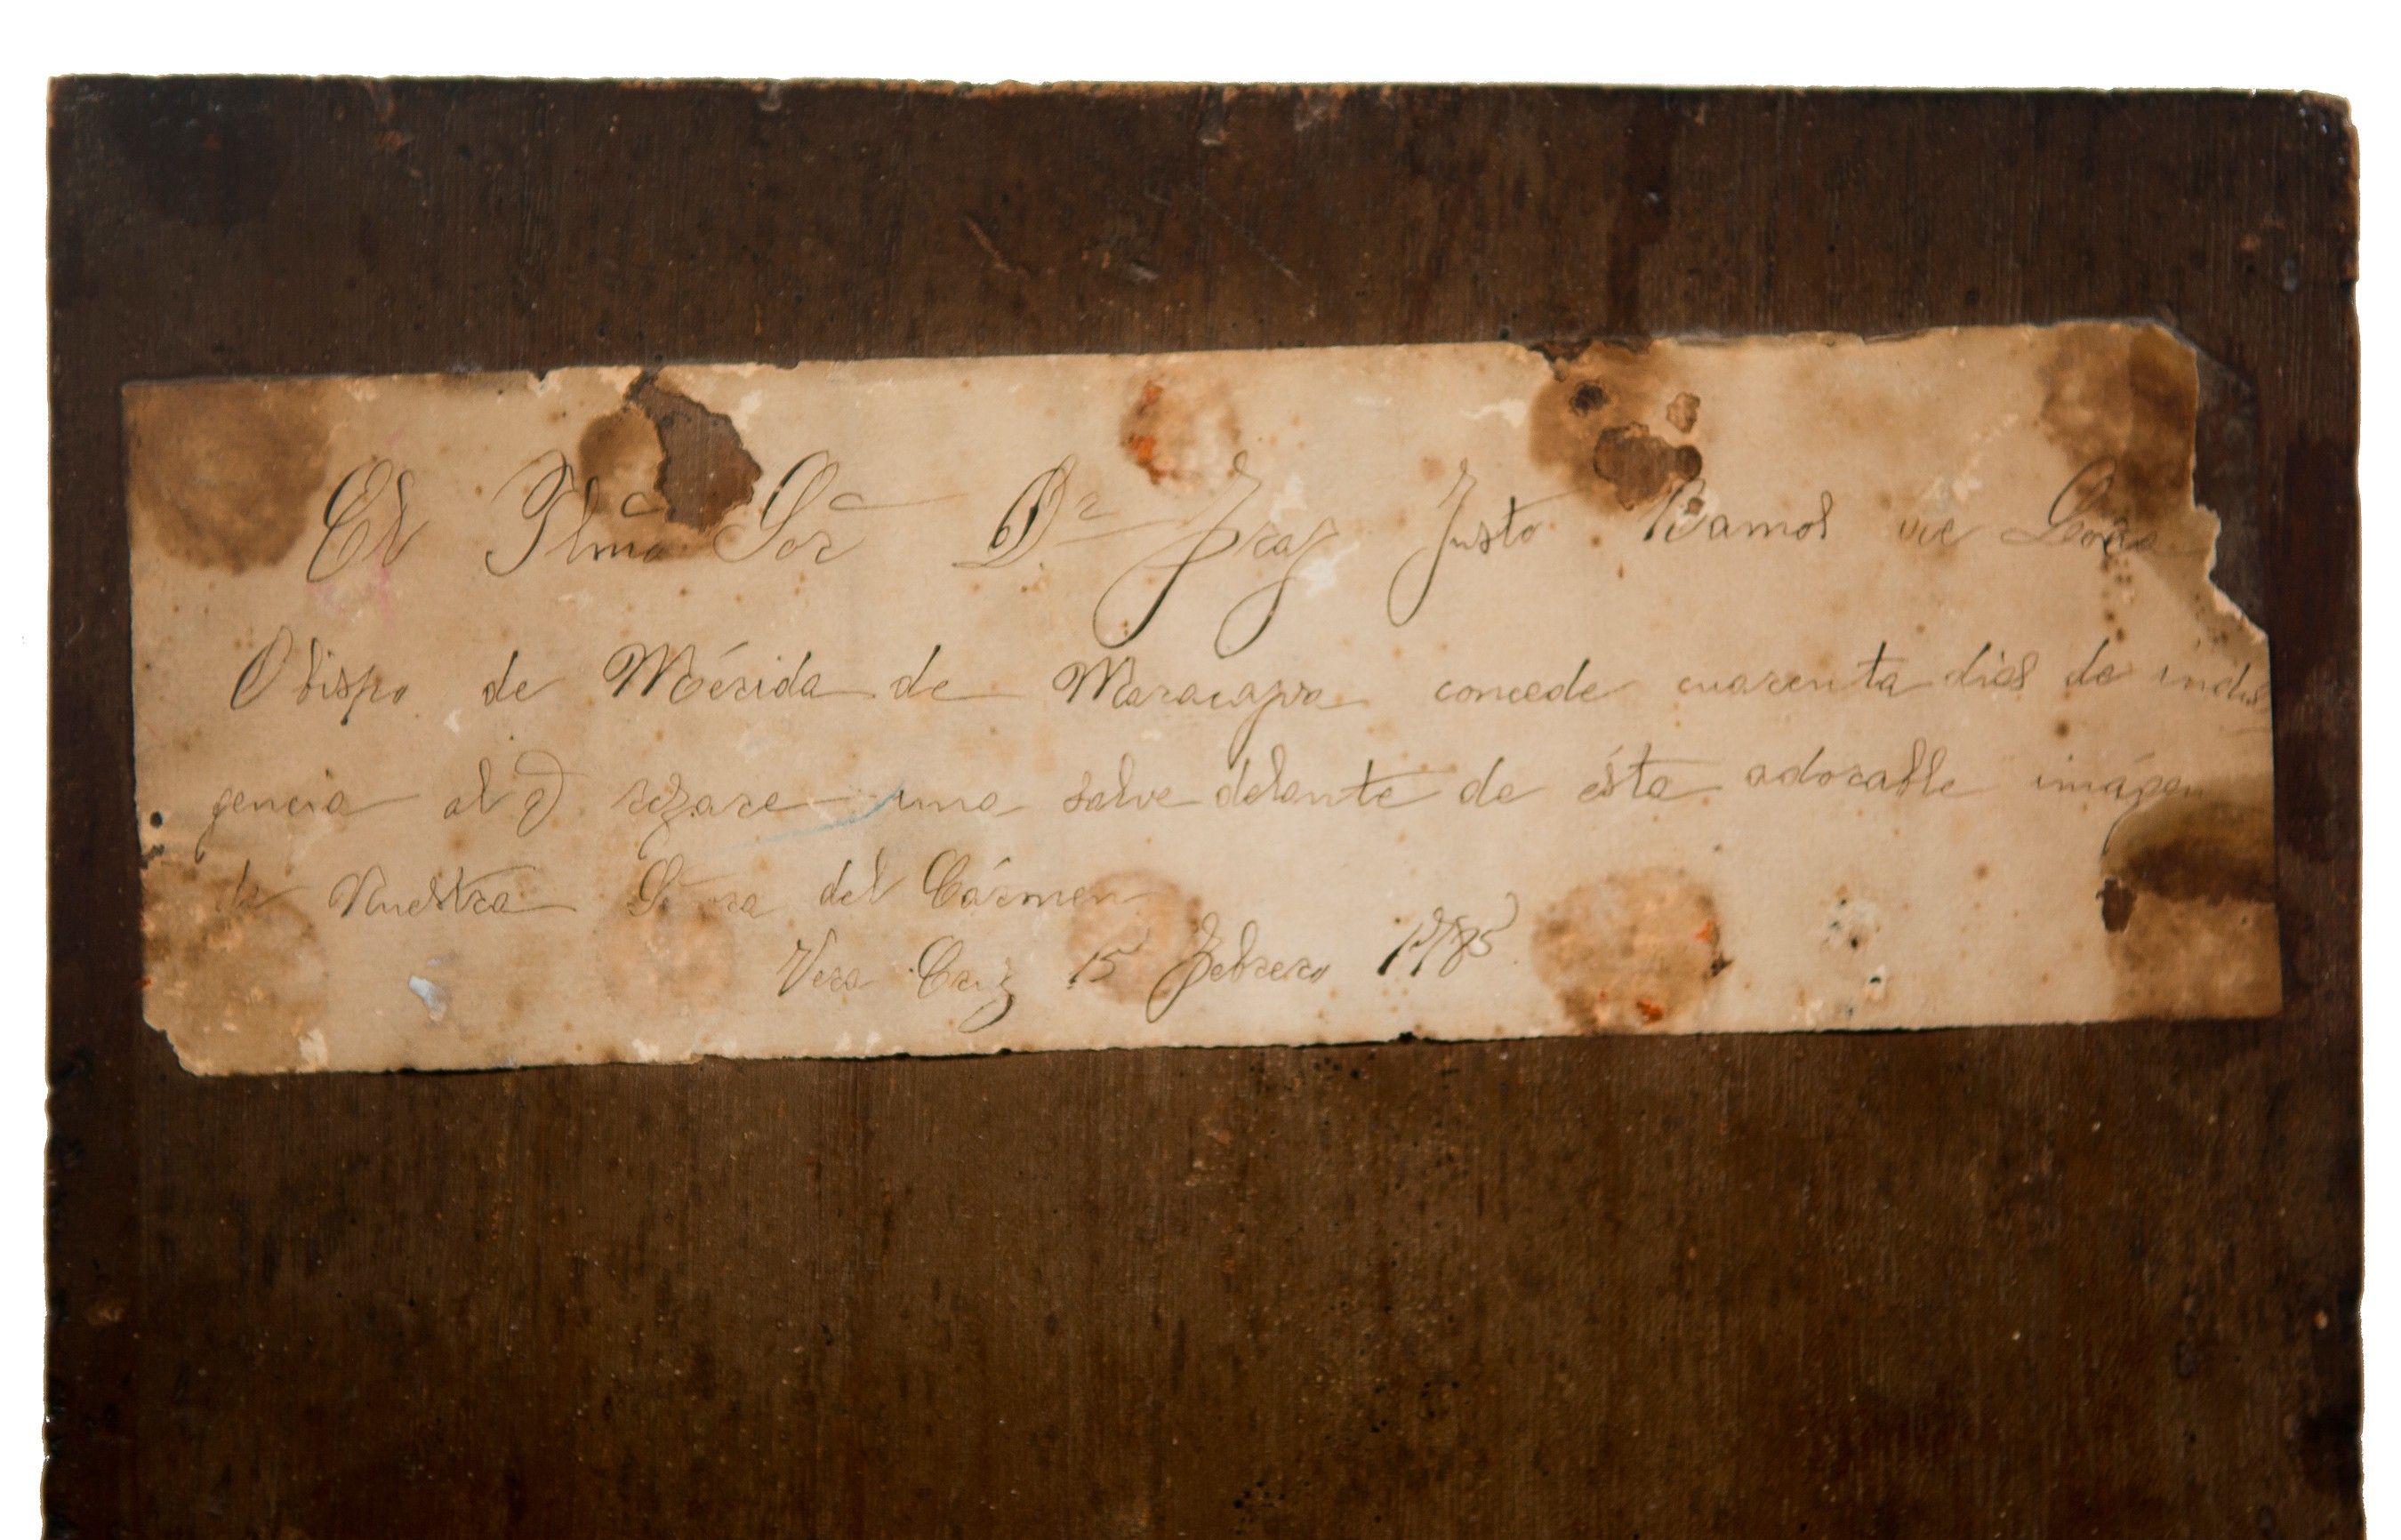 El Ylmo Sor Dr Fray Justo Ramos de Lora
Obispo de Mérida de Maracaybo concede cuarenta dias de indul
gencia al q rezare una salve delante de ésta adorable imágen
de Nuestra Señora del Cármen
Vera Cruz 15 Febrero 1785